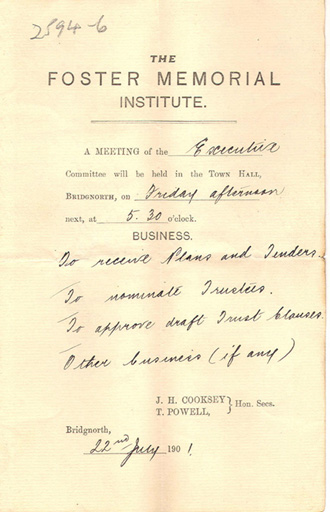 2594-6
THE
FOSTER MEMORIAL
INSTITUTE.
A MEETING of the Executive
Committee will be held in the TOWN HALL,
BRIDGNORTH, on Friday afternoon
next, at 5.30 o'clock.
BUSINESS.
To receive Plans and Tenders.
To nominate Trustees.
To approve draft Trust Clauses.
Other business (if any)
J. H. COOKSEY
T. POWELL, } Hon. Secs.
Bridgnorth,
22nd July 1901.